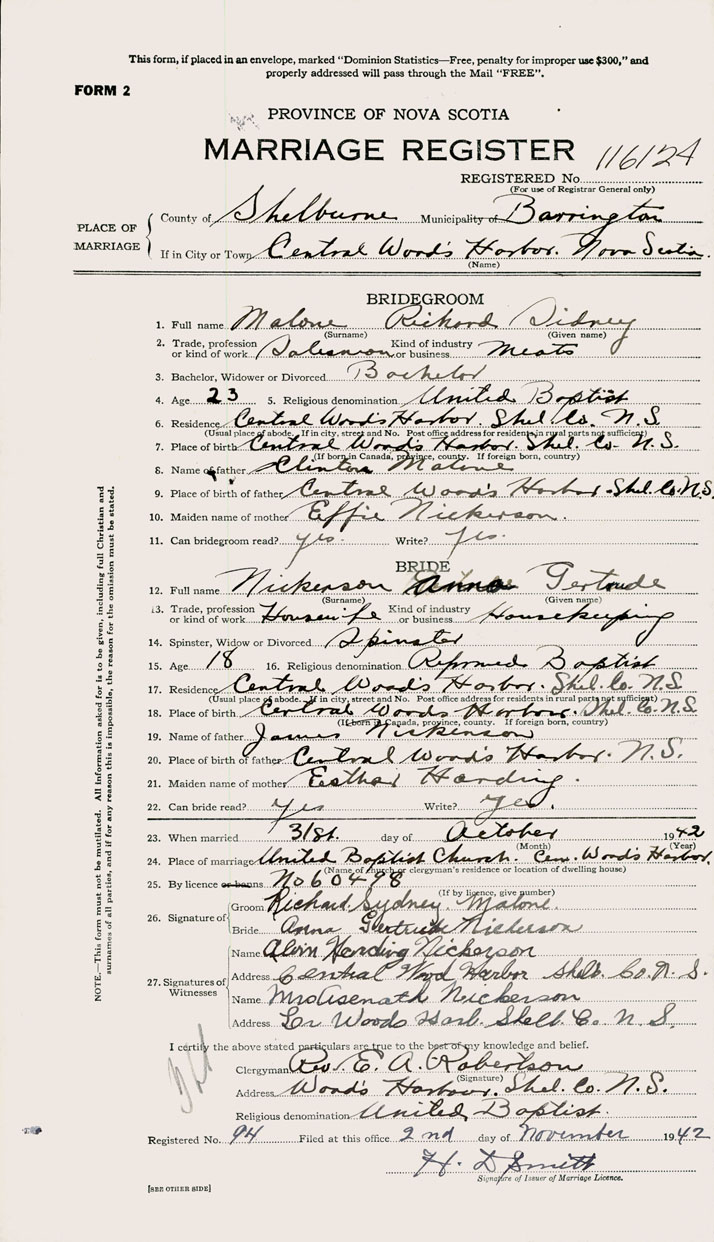 This form, if placed in an envelope, marked "Dominion Statistics—Free, penalty for improper use $300," and
properly addressed will pass through the Mail "FREE".
FORM 2
PROVINCE OF NOVA SCOTIA
MARRIAGE REGISTER
116124
REGISTERED No.
(For use of Registrar General only)
PLACE OF MARRIAGE
County of Shelburne Municipality of Barrington
If in City or Town Central Wood's Harbor. Nova Scotia.
(Name)
BRIDEGROOM
1. Full name Malone Richard Sidney
(Surname) (Given name)
2. Trade, profession or kind of work Salesman Kind of industry or business Meats
3. Bachelor, Widower or Divorced Bachelor
4. Age 23 5. Religious denomination United Baptist
6. Residence Central Wood's Harbor. Shel. Co. N.S.
(Usual place of abode. If in city, street and No. Post office address for residents in rural parts not sufficient)
7. Place of birth Central Wood's Harbor. Shel. Co. N.S.
(If born in Canada, province, county. If foreign born, country)
8. Name of father Clinton Malone
9. Place of birth of father Central Wood's Harbor. Shel. Co. N.S.
10. Maiden name of mother Effie Nickerson.
11. Can bridegroom read? yes. Write? yes.
BRIDE
12. Full name Nickerson Anna Gertrude
(Surname) (Given name)
13. Trade, profession or kind of work Housewife Kind of industry or business Housekeeping
14. Spinster, Widow or Divorced Spinster
15. Age 18 16. Religious denomination Reformed Baptist
17. Residence Central Wood's Harbor. Shel. Co. N.S.
(Usual place of abode. If in city, street and No. Post office address for residents in rural parts not sufficient)
18. Place of birth Central Woods Harbour. Shel. Co. N.S.
(If born in Canada, province, county. If foreign born, country)
19. Name of father James Nickerson
20. Place of birth of father Central Wood's Harbor. N.S.
21. Maiden name of mother Esther Harding.
22. Can bride read? Yes Write? Yes.
23. When married 31st. day of October 1942
(Month) (Year)
24. Place of marriage United Baptist Church. Cen. Wood's Harbor.
(Name of church or clergyman's residence or location of dwelling house)
25. By licence or banns No 60498
(If by licence, give number)
26. Signature of
Groom Richard Sydney Malone.
Bride Anna Gertrude Nickerson
27. Signatures of Witnesses
Name Alvin Harding Nickerson
Address Central Wood Harbor Shelb. Co. N.S.
Name Mrs Asenath Nickerson
Address Lr Woods Harb. Shelb. C. N.S.
I certify the above stated particulars are true to the best of my knowledge and belief.
Clergyman Rev. E. A. Robertson
(Signature)
Address Wood's Harbour. Shel. Co. N.S.
Religious denomination United Baptist.
Registered No. 94 Filed at this office 2nd day of November 1942
H. D Smith
Signature of Issuer of Marriage Licence.
[SEE OTHER SIDE]
NOTE.—This form must not be mutilated. All information asked for is to be given, including full Christian and
surnames of all parties, and if for any reason this is impossible, the reason for the omission must be stated.